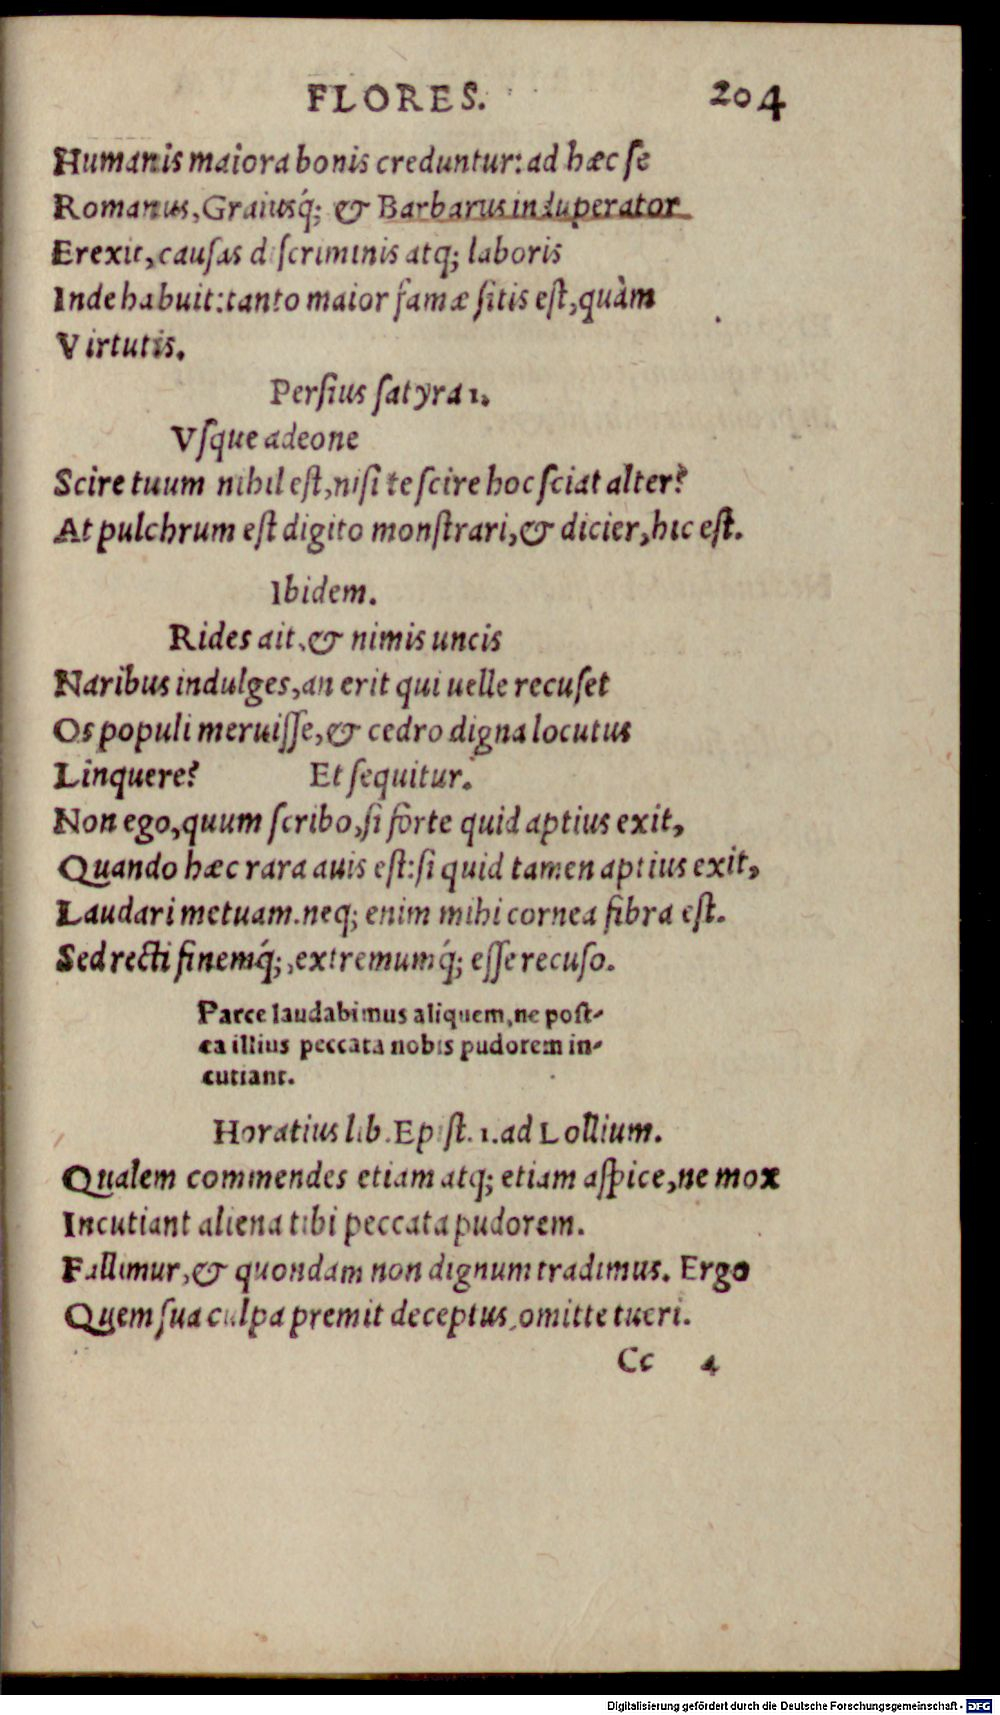 FLORES. 204
Humanis maiora bonis creduntur: ad hæc se
Romanus, Graiusq́; & Barbarus induperator
Erexit, causas discriminis atq; laboris
Inde habuit: tanto maior famæ sitis est, quàm
Virtutis.
Persius satyra 1.
Vsque adeone
Scire tuum nihil est, nisi te scire hoc sciat alter?
At pulchrum est digito monstrari, & dicier, hic est.
Ibidem.
Rides ait, & nimis uncis
Naribus indulges, an erit qui uelle recuset
Os populi meruisse, & cedro digna locutus
Linquere? Et sequitur.
Non ego, quum scribo, si forte quid aptius exit,
Quando hæc rara auis est: si quid tamen aptius exit,
Laudari metuam. neq; enim mihi cornea fibra est.
Sed recti finemq́;, extremumq́; esse recuso.
Parce laudabimus aliquem, ne post-
ea illius peccata nobis pudorem in-
cutiant.
Horatius lib. Epist. 1. ad Lollium.
Qualem commendes etiam atq; etiam aspice, ne mox
Incutiant aliena tibi peccata pudorem.
Fallimur, & quondam non dignum tradimus. Ergo
Quem sua culpa premit deceptus, omitte tueri.
Cc 4
Digitalisierung gefördert durch die Deutsche Forschungsgemeinschaft - DFG